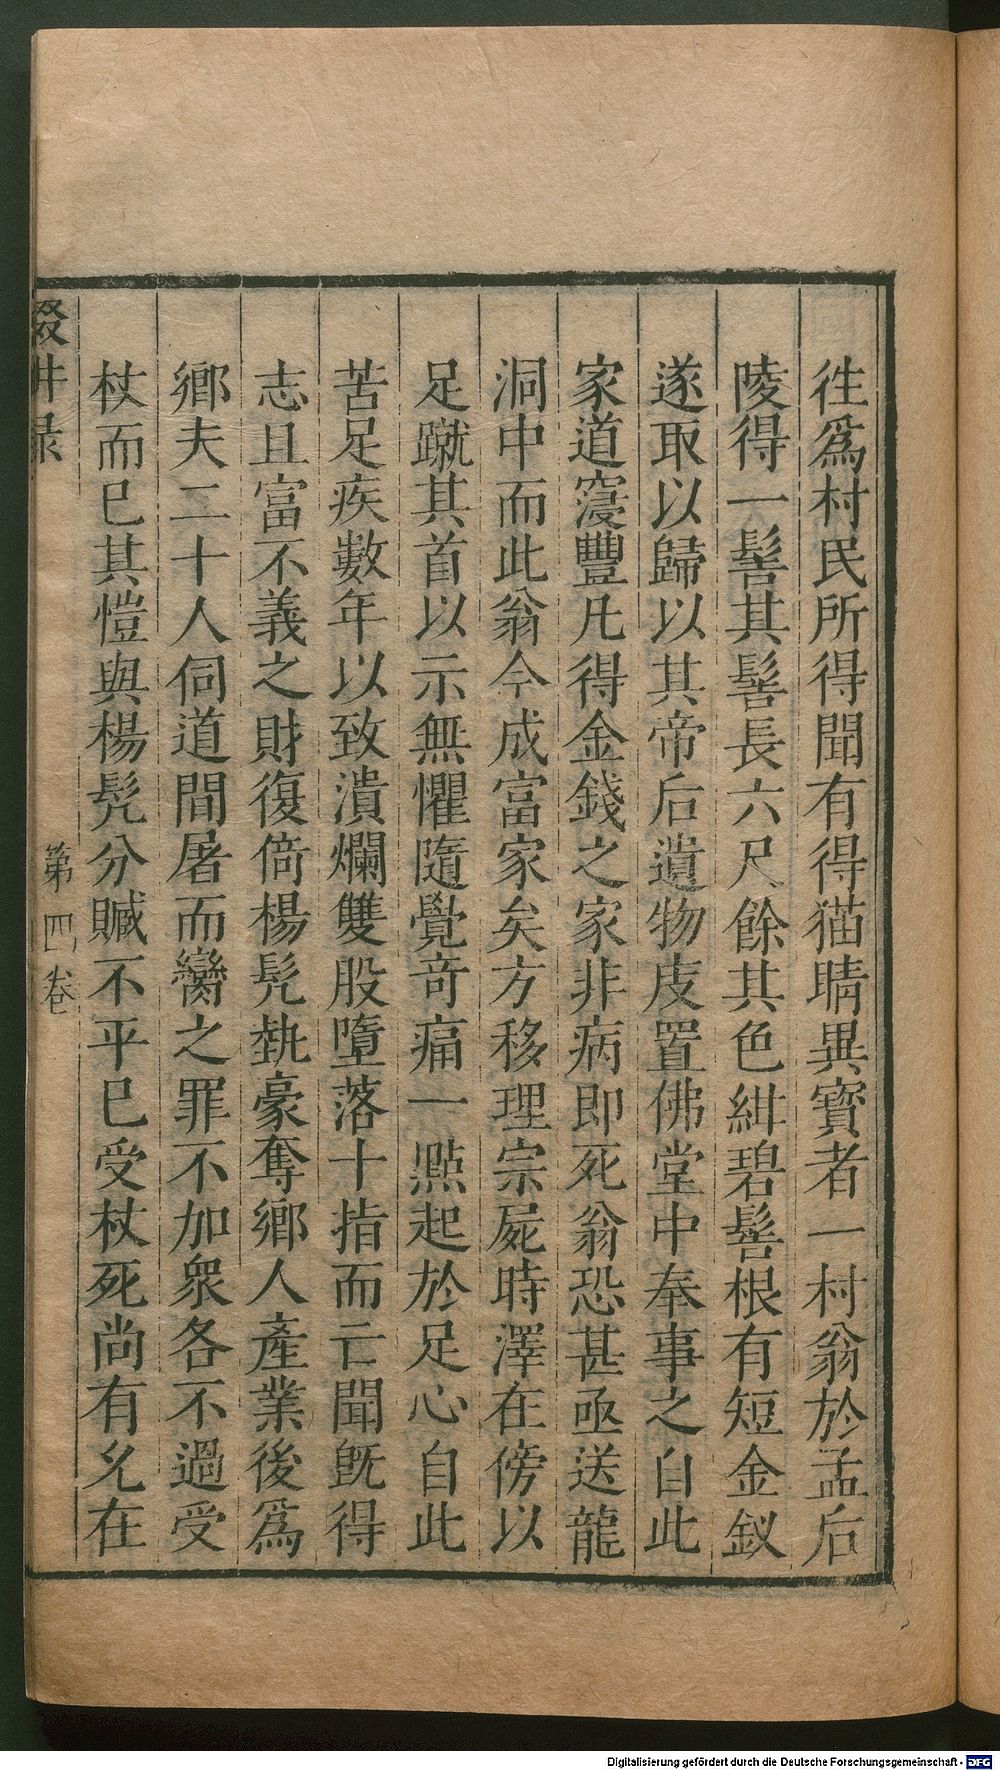 徃爲村民所得聞有得猫睛異寶者一村翁於孟后
陵得一髻其髻長六尺餘其色紺碧髻根有短金釵
遂取以歸以其帝后遺物庋置佛堂中奉事之自此
家道寖豐凡得金錢之家非病即死翁恐甚亟送龍
洞中而此翁今成富家矣方移理宗屍時澤在傍以
足蹴其首以示無懼隨覺奇痛一㸃起於足心自此
苦足疾數年以致潰爛雙股墮落十指而亡聞旣得
志且富不義之財復倚楊髠埶豪奪鄉人產業後爲
鄉夫二十人伺道間屠而臠之罪不加衆各不過受
杖而已其愷與楊髠分贓不平已受杖死尚有允在
輟畊录
第四卷
Digitalisierung gefördert durch die Deutsche Forschungsgemeinschaft - DFG